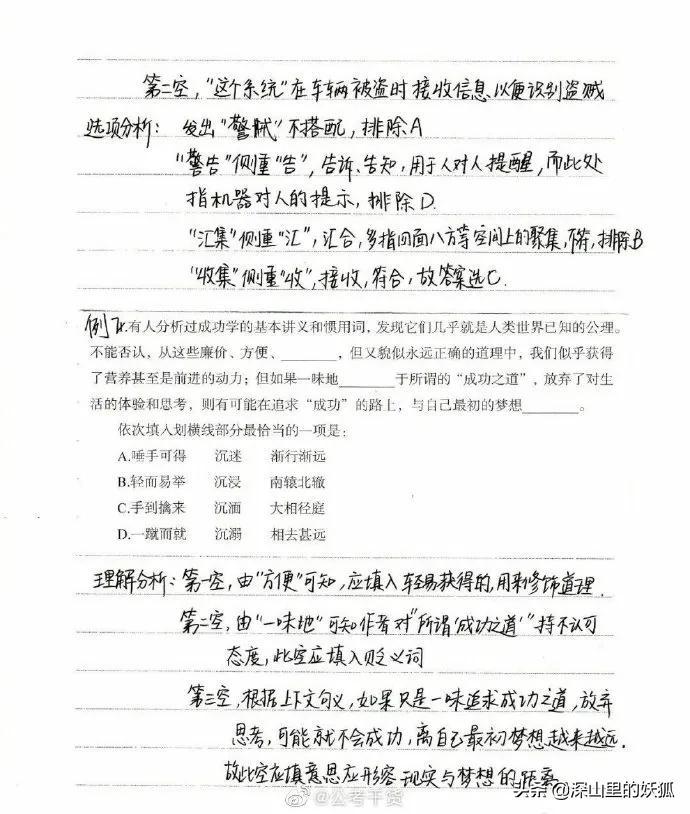 第二空，"这个系统"在车辆被盗时接收信息以便识别盗贼
选项分析：发出"警戒"不搭配，排除A
"警告"侧重"告"，告诉、告知，用于人对人提醒，而此处
指机器对人的提示，排除D.
"汇集"侧重"汇"，汇合，多指四面八方等空间上的聚集，不符，排除B
"收集"侧重"收"，接收，符合，故答案选C.
例7.有人分析过成功学的基本讲义和惯用词，发现它们几乎就是人类世界已知的公理。
不能否认，从这些廉价、方便、________，但又貌似永远正确的道理中，我们似乎获得
了营养甚至是前进的动力；但如果一味地________于所谓的"成功之道"，放弃了对生
活的体验和思考，则有可能在追求"成功"的路上，与自己最初的梦想________。
依次填入划横线部分最恰当的一项是：
A.唾手可得 沉迷 渐行渐远
B.轻而易举 沉浸 南辕北辙
C.手到擒来 沉湎 大相径庭
D.一蹴而就 沉溺 相去甚远
理解分析：第一空，由"方便"可知，应填入轻易获得的，用来修饰道理.
第二空，由"一味地"可知作者对"所谓'成功之道'"持不认可
态度，此空应填入贬义词
第三空，根据上下文句义，如果只是一味追求成功之道，放弃
思考，可能就不会成功，离自己最初梦想越来越远.
故此空应填意思应形容现实与梦想的距离
@公考干货
头条 @深山里的妖狐